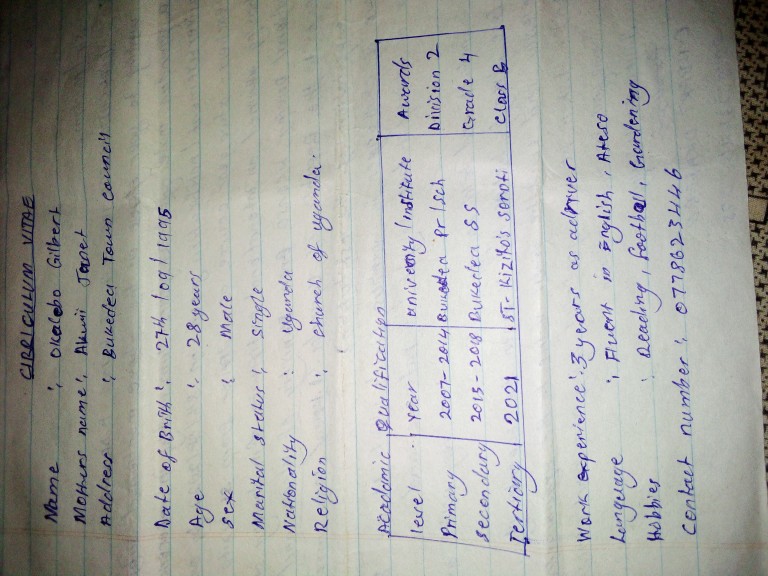 CIRRICULUM VITAE
Name : Okalebo Gilbert
Mothers name : Akwii Janet
Address : Bukedea Town council
Date of Birth : 27th/09/1995
Age : 28 years
Sex : Male
Marital status : Single
Nationality : Uganda
Religion : Church of uganda.
Academic Qualification
level year university/institute Awards
Primary 2007-2014 Bukedea pr/sch Division 2
Secondary 2015-2018 Bukedea SS Grade 4
Tertiary 2021 ST-Kizito's Soroti Class B
Work experience : 3 years as a driver
Language : Fluent in English, Ateso
Hobbies : Reading, football, Gardening
Contact number : 0778623446